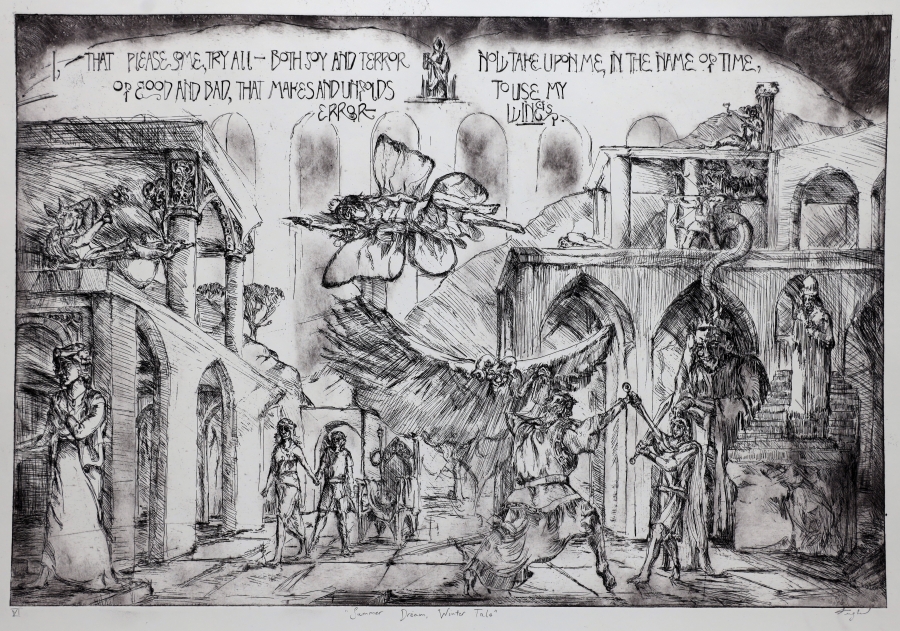 I, — THAT PLEASE SOME, TRY ALL — BOTH JOY AND TERROR
OF GOOD AND BAD, THAT MAKES AND UNFOLDS
ERROR —
NOW TAKE UPON ME, IN THE NAME OF TIME,
TO USE MY
WINGS.
"Summer Dream, Winter Tale"